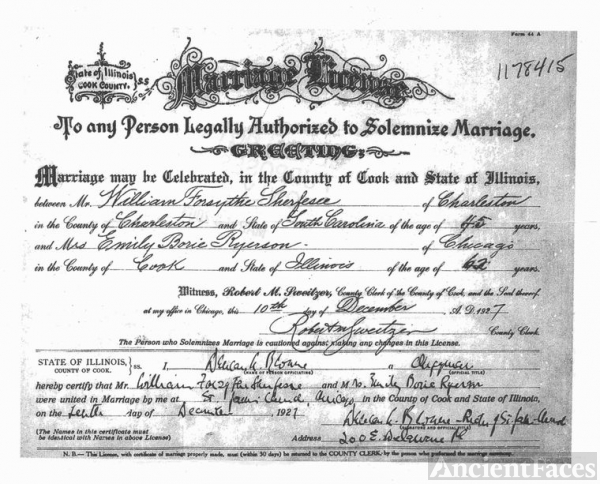 Form 44 A
State of Illinois
COOK COUNTY. SS
Marriage License
1178415
To any Person Legally Authorized to Solemnize Marriage.
GREETING:
Marriage may be Celebrated, in the County of Cook and State of Illinois,
between Mr. William Forsythe Sherfesee of Charleston
in the County of Charleston and State of South Carolina of the age of 45 years,
and Mrs Emily Borie Ryerson of Chicago
in the County of Cook and State of Illinois of the age of 62 years.
Witness, Robert M. Sweitzer, County Clerk of the County of Cook, and the Seal thereof,
at my office in Chicago, this 10th day of December A. D. 1927
Robert M Sweitzer County Clerk.
The Person who Solemnizes Marriage is cautioned against making any changes in this License.
STATE OF ILLINOIS, COUNTY OF COOK. ss. I, Duncan H. Browne a Clergyman
(NAME OF PERSON OFFICIATING) (OFFICIAL TITLE)
hereby certify that Mr. William Forsythe Sherfesee and Mrs. Emily Borie Ryerson
were united in Marriage by me at St. James Church, Chicago in the County of Cook and State of Illinois,
on the tenth day of December 1927
(The Names in this certificate must be identical with Names in above License)
(SIGNATURE AND OFFICIAL TITLE)
Address 200 E. Delaware Pl
N. B.—This License, with certificate of marriage properly made, must (within 30 days) be returned to the COUNTY CLERK, by the person who performed the marriage ceremony.
AncientFaces